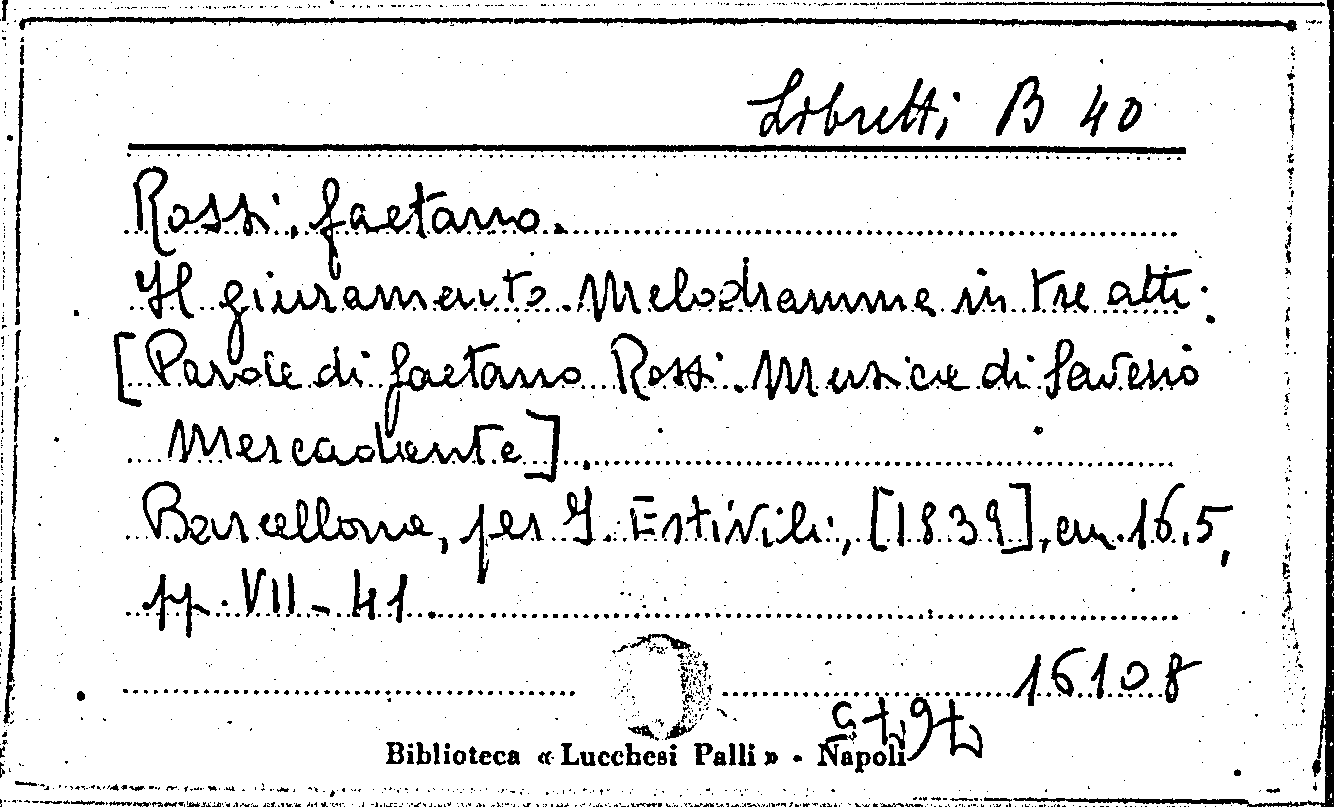 Libretti B 40
Rossi, Gaetano.
Il giuramento. Melodramma in tre atti.
[Parole di Gaetano Rossi. Musica di Saverio
Mercadante].
Barcellona, per J. Estivill, [1839], cm. 16,5,
pp. VII-41.
16108
Biblioteca « Lucchesi Palli » - Napoli